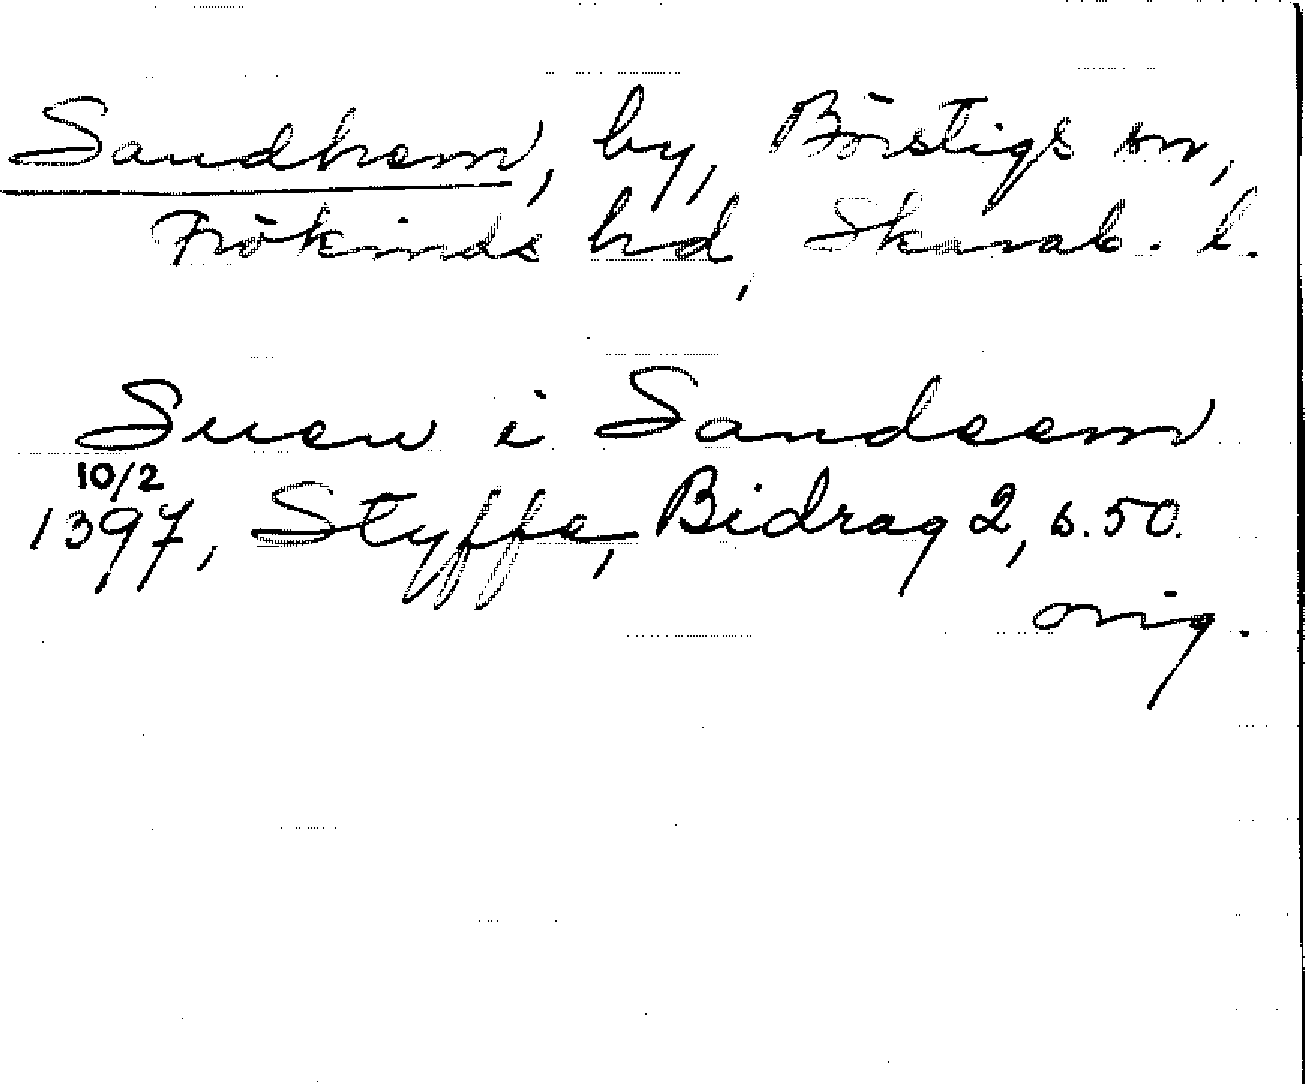 Sandhem, by, Börstigs sn,
Frökinds hd, Skarab. l.
Suen i Sandeem
10/2
1397, Styffe, Bidrag 2, s. 50.
orig.